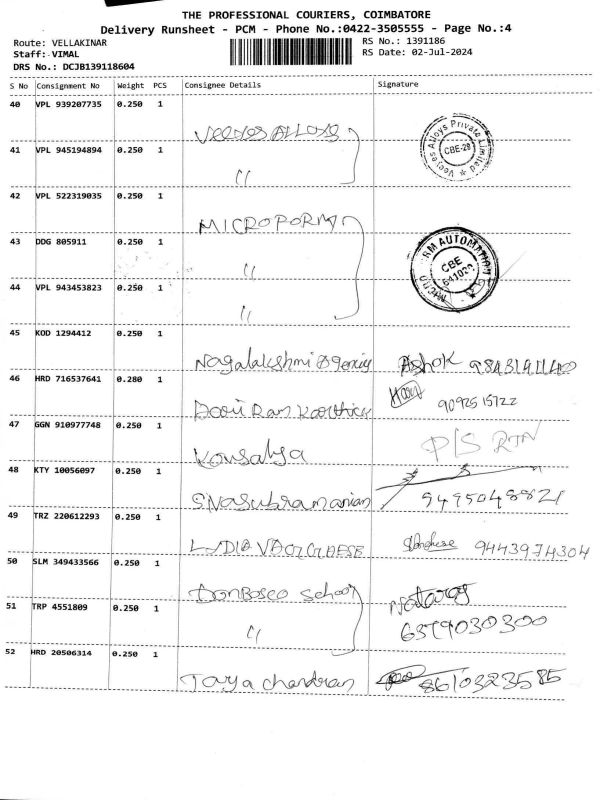 THE PROFESSIONAL COURIERS, COIMBATORE
Delivery Runsheet - PCM - Phone No.:0422-3505555 - Page No.:4
Route: VELLAKINAR
Staff: VIMAL
DRS No.: DCJB139118604
RS No.: 1391186
RS Date: 02-Jul-2024
S No Consignment No Weight PCS Consignee Details Signature
40 VPL 939207735 0.250 1
Veeyes Alloys
Veeyes Alloys Private Limited CBE-29
41 VPL 945194894 0.250 1
"
42 VPL 522319035 0.250 1
MICROFORM
43 DDG 805911 0.250 1
"
AUTOMATION CBE 641029
44 VPL 943453823 0.250 1
"
45 KOD 1294412 0.250 1
Nagalakshmi Agency Ashok
46 HRD 716537641 0.280 1
Ram Karthick 9092515722
47 GGN 910977748 0.250 1
Kousalya P/S RTN
48 KTY 10056097 0.250 1
Sivasubramanian 9495048821
49 TRZ 220612293 0.250 1
LYDIA VARGHESE 9443974304
50 SLM 349433566 0.250 1
Donbosco School Nataraj
51 TRP 4551809 0.250 1
" 6379030300
52 HRD 20506314 0.250 1
Jaya chandran 8610323585